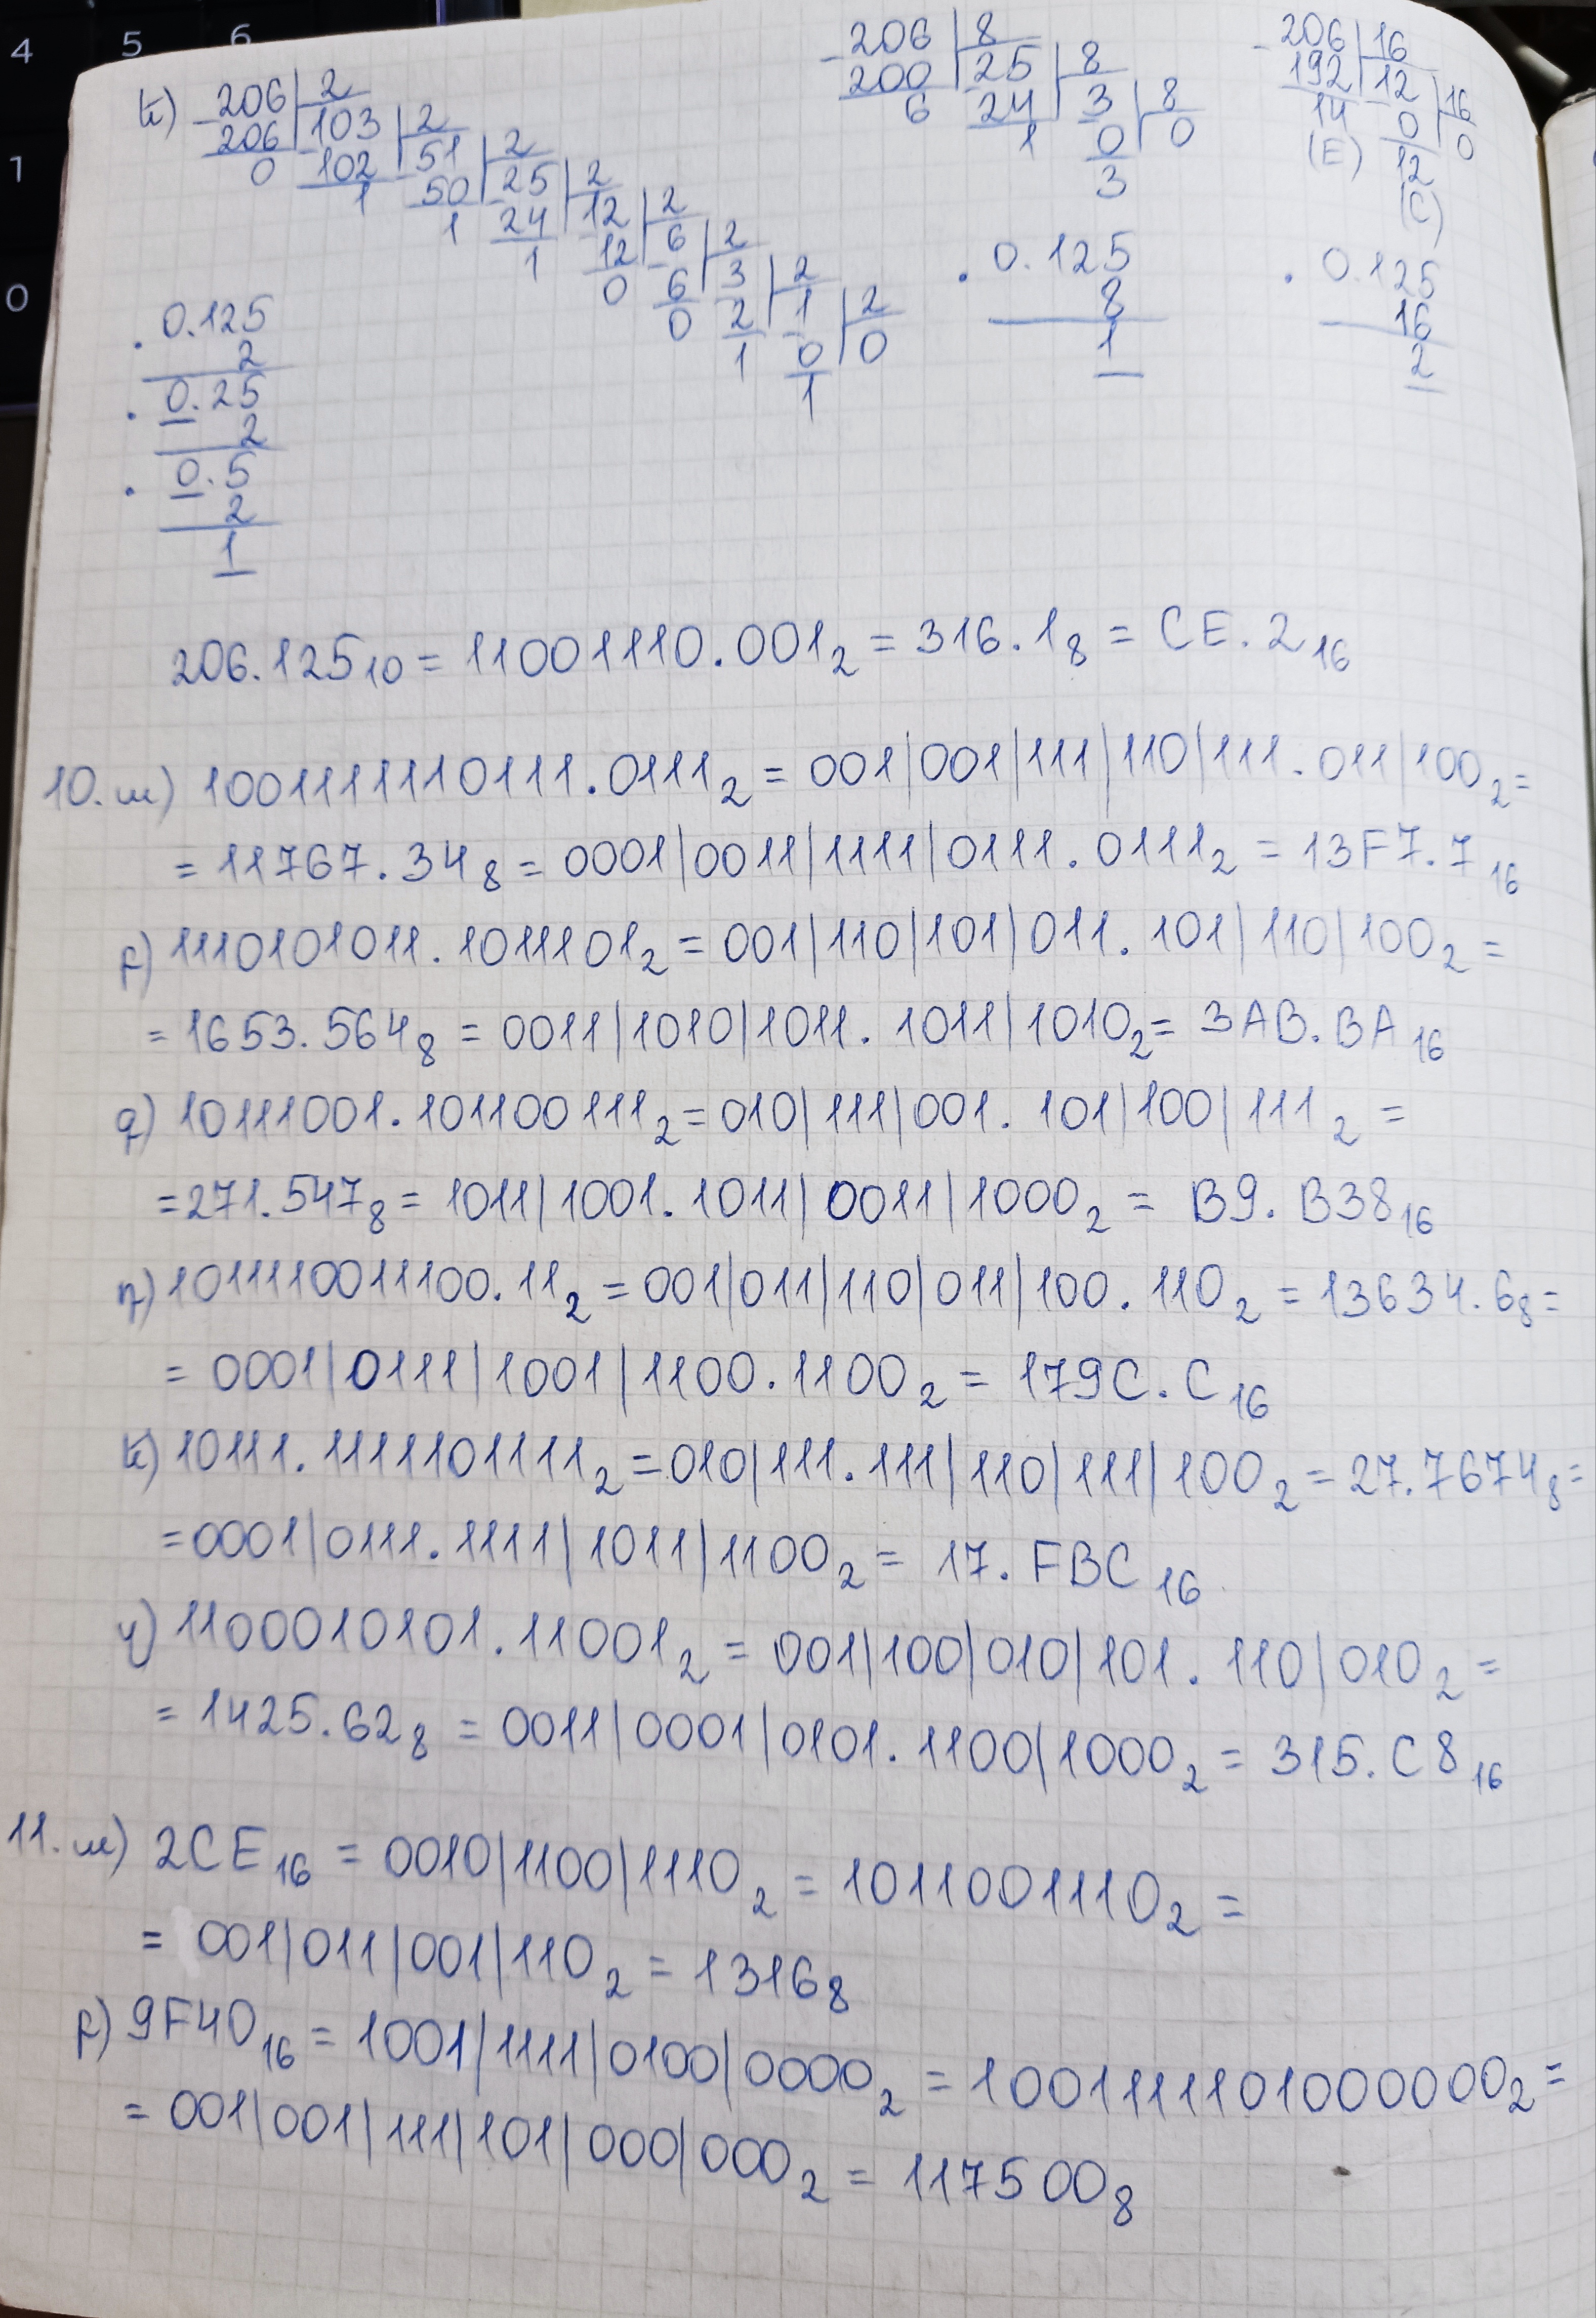 4 5 6
1
0
ե) 206 | 2
206 | 103 | 2
0 102 | 51 | 2
1 50 | 25 | 2
1 24 | 12 | 2
1 12 | 6 | 2
0 6 | 3 | 2
0 2 | 1 | 2
1 0 | 0
1
206 | 8
200 | 25 | 8
6 24 | 3 | 8
1 0 | 0
3
206 | 16
192 | 12 | 16
14 0 | 0
(E) 12
(C)
0.125
2
0.25
2
0.5
2
1
0.125
8
1
0.125
16
2
206.125₁₀ = 11001110.001₂ = 316.1₈ = CE.2₁₆
10. ա) 1001111110111.0111₂ = 001|001|111|110|111.011|100₂ =
= 11767.34₈ = 0001|0011|1111|0111.0111₂ = 13F7.7₁₆
բ) 1110101011.1011101₂ = 001|110|101|011.101|110|100₂ =
= 1653.564₈ = 0011|1010|1011.1011|1010₂ = 3AB.BA₁₆
գ) 10111001.101100111₂ = 010|111|001.101|100|111₂ =
= 271.547₈ = 1011|1001.1011|0011|1000₂ = B9.B38₁₆
դ) 1011110011100.11₂ = 001|011|110|011|100.110₂ = 13634.6₈ =
= 0001|0111|1001|1100.1100₂ = 179C.C₁₆
ե) 10111.1111101111₂ = 010|111.111|110|111|100₂ = 27.7674₈ =
= 0001|0111.1111|1011|1100₂ = 17.FBC₁₆
զ) 1100010101.11001₂ = 001|100|010|101.110|010₂ =
= 1425.62₈ = 0011|0001|0101.1100|1000₂ = 315.C8₁₆
11. ա) 2CE₁₆ = 0010|1100|1110₂ = 1011001110₂ =
= 001|011|001|110₂ = 1316₈
բ) 9F40₁₆ = 1001|1111|0100|0000₂ = 1001111101000000₂ =
= 001|001|111|101|000|000₂ = 117500₈